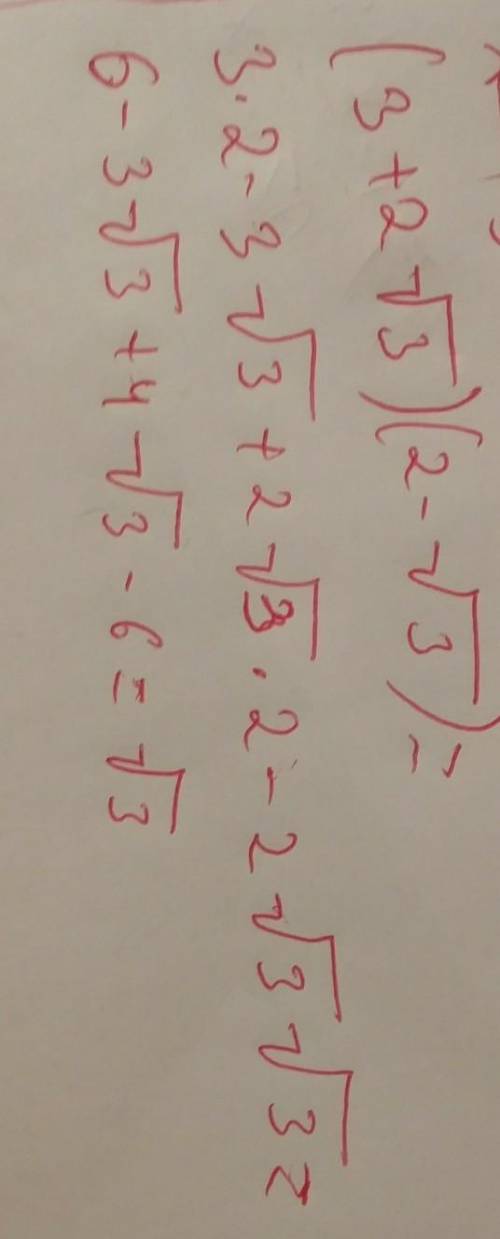 (3+2√3)(2-√3)=
3·2-3√3+2√3·2-2√3√3=
6-3√3+4√3-6=√3